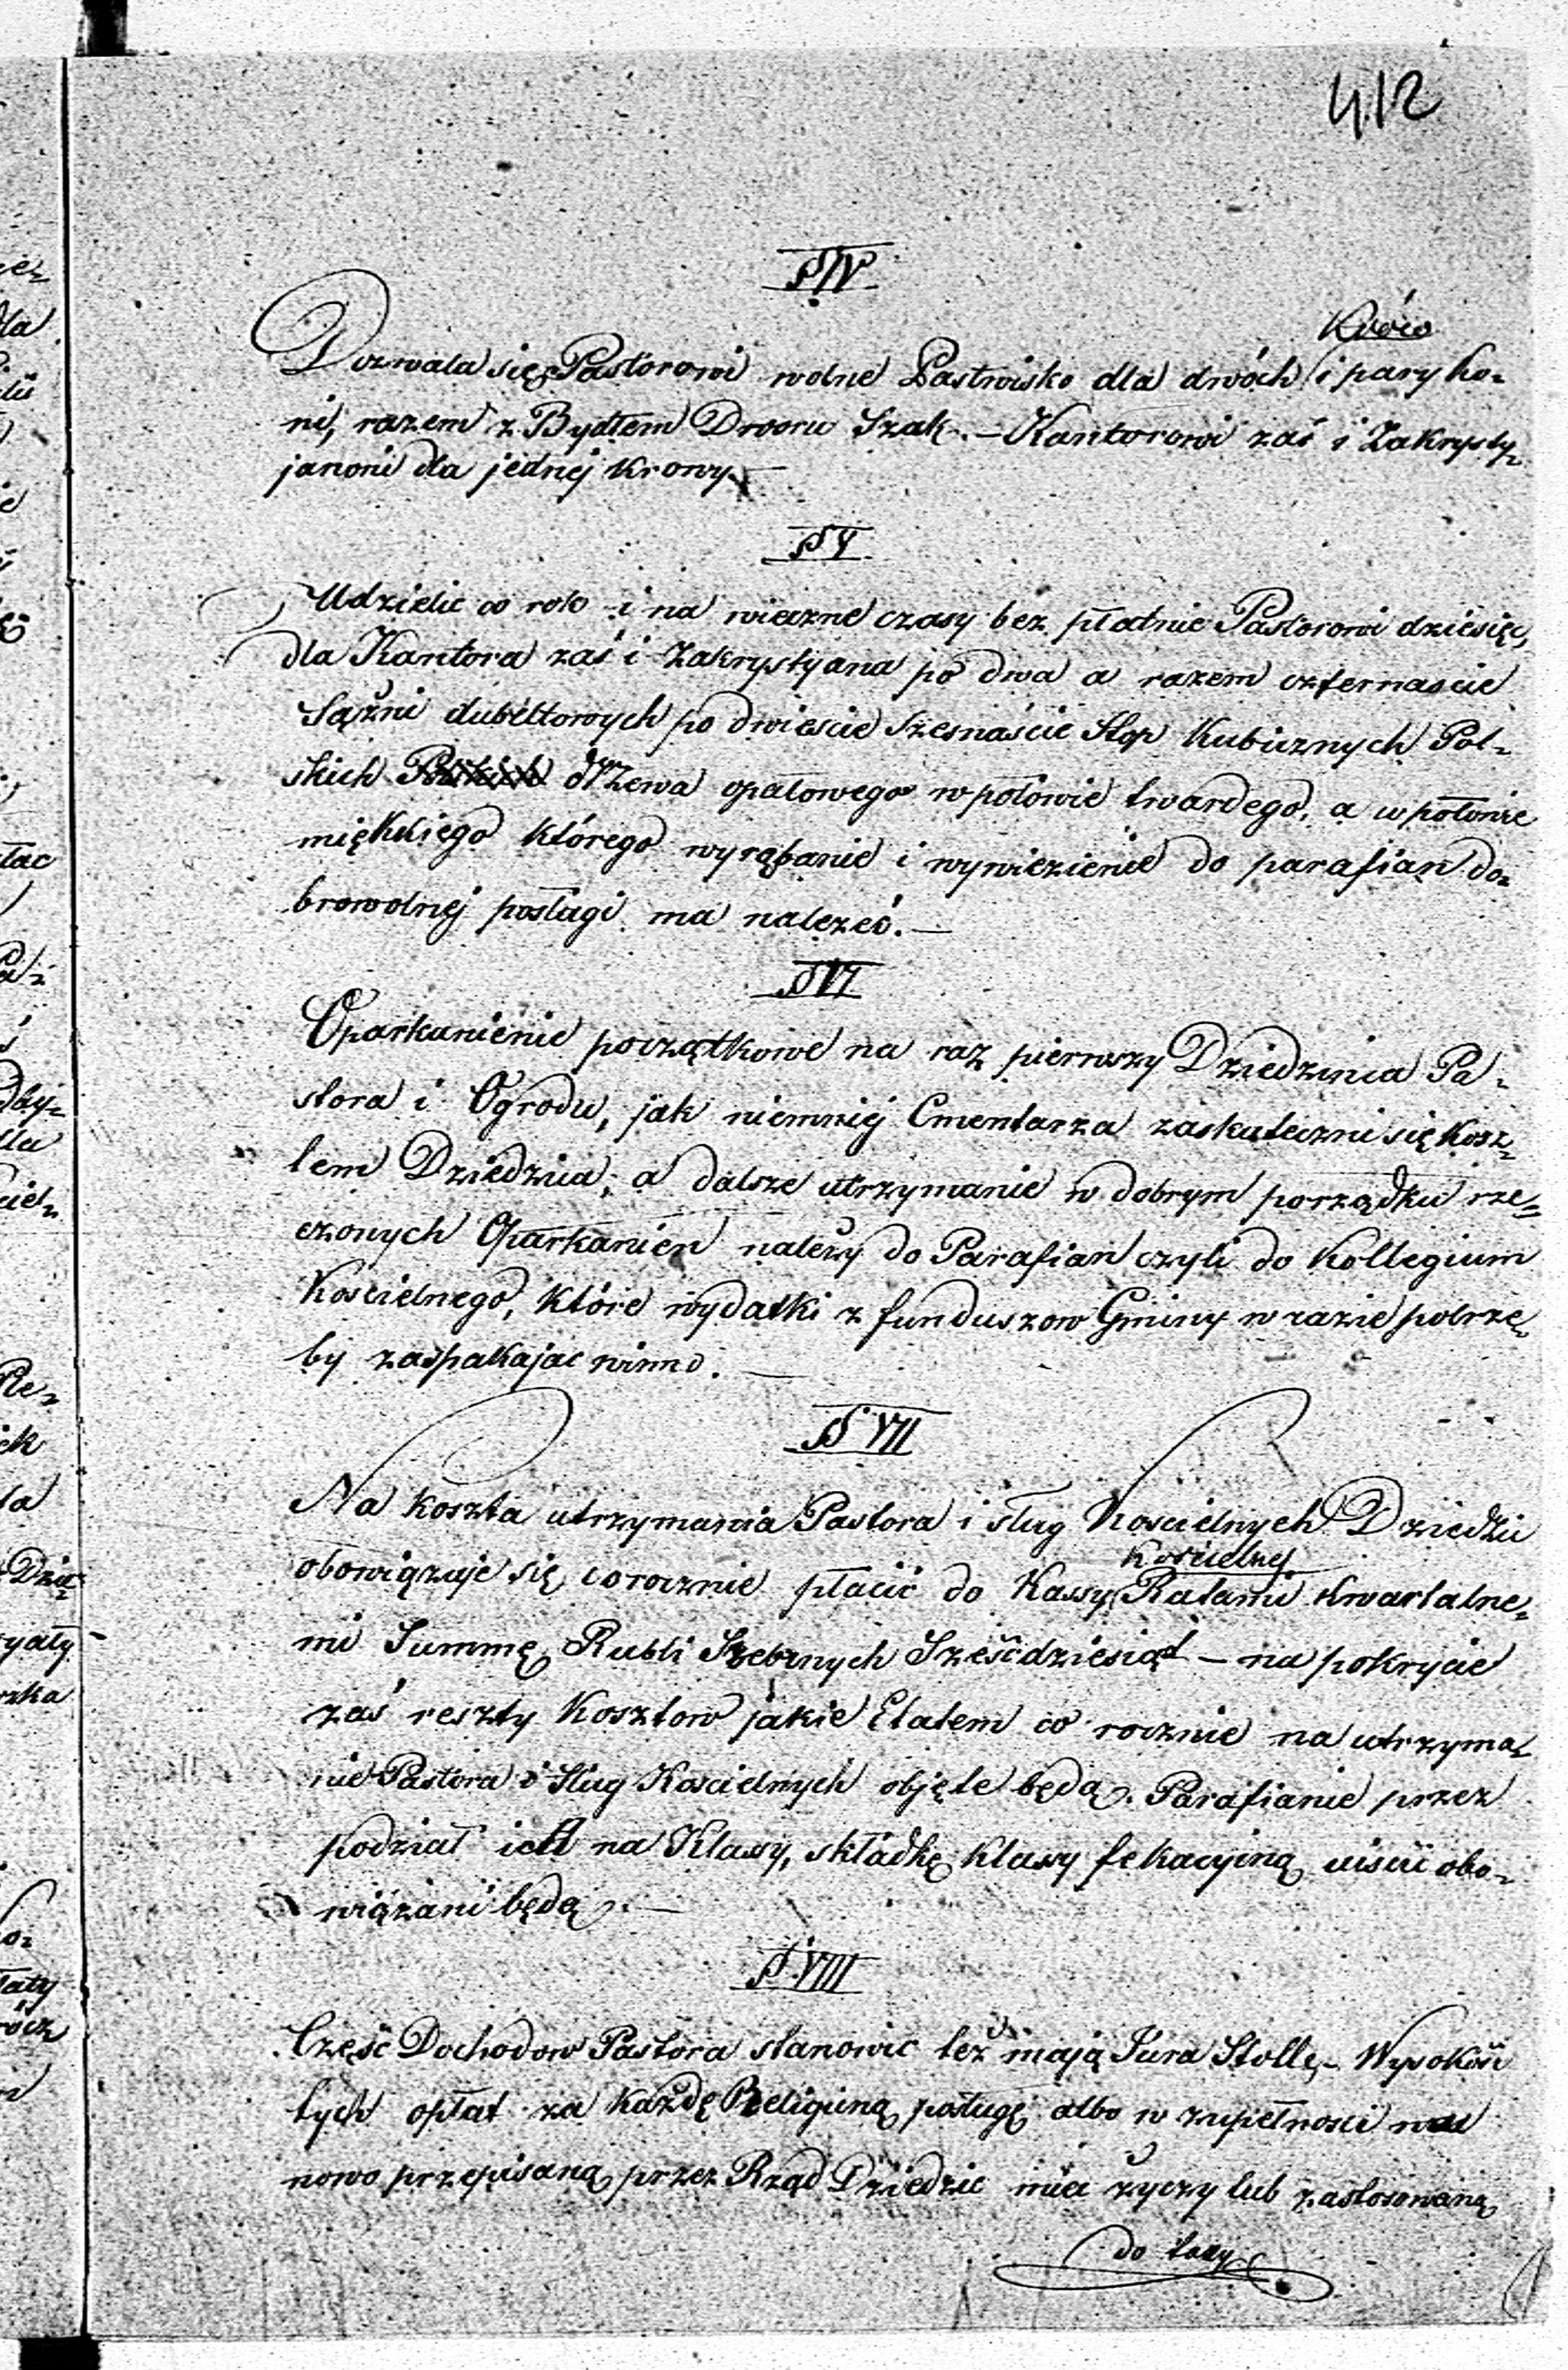 412
§ IV
Krów
Dozwala się Pastorowi wolne Pastwisko dla dwóch i pary ko-
ni, razem z Bydłem Dworu Szak. — Kantorowi zaś i Zakrysty-
janowi dla jednej krowy. —
§ V
Udzielić co rok i na wieczne czasy bez płatnie Pastorowi dziesięć,
dla Kantora zaś i Zakrystyana po dwa a razem czternaście
Sążni dubeltowych po dwieście szesnaście Stop Kubicznych Pol-
skich drzewa opałowego w połowie twardego, a w połowie
miękkiego którego wyrąbanie i wywiezienie do parafian do-
browolnej posługi ma należeć. —
§ VI
Oparkanienie początkowe na raz pierwszy Dziedzińca Pa-
stora i Ogrodu, jak niemniej Cmentarza zaskuteczni się kosz-
tem Dziedzica; a dalsze utrzymanie w dobrym porządku rze-
czonych Oparkanień należy do Parafian czyli do Kollegium
Kościelnego, które wydatki z funduszow Gminy w razie potrze-
by zaspakajac winno. —
§ VII
Na koszta utrzymania Pastora i sług Kościelnych Dziedzic
Kościelnej
obowiązuje się corocznie płacić do Kassy Ratami kwartalne-
mi Summę Rubli Srebrnych Sześćdziesiąt — na pokrycie
zaś reszty Kosztow jakie Etatem co rocznie na utrzyma-
nie Pastora i Sług Kościelnych objęte będą. Parafianie przez
podział ich na Klassy, składkę klassyfikacyjną uiścić obo-
wiązani będą. —
§ VIII
Część Dochodow Pastora stanowic też mają Jura Stollę, — Wysokość
tych opłat za każdę Religijną posługę albo w zupełnosci
nowo przepisaną przez Rząd Dziedzic mieć życzy lub zastosowaną
do taxy